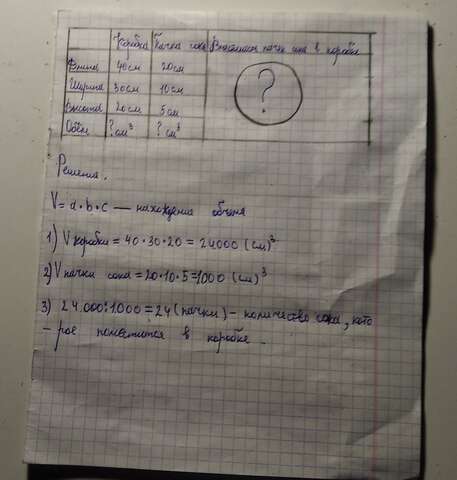 Коробка Пачка сока Вместимость пачек сока в коробке
Длина 40см 20см
Ширина 30см 10см
Высота 20см 5см ?
Объём ? см³ ? см³
Решения.
V = a · b · c — нахождения объёма
1) V коробки = 40 · 30 · 20 = 24000 (см)³
2) V пачки сока = 20 · 10 · 5 = 1000 (см)³
3) 24.000 : 1.000 = 24 (пачки) – количество сока, кото
– рое поместится в коробке.